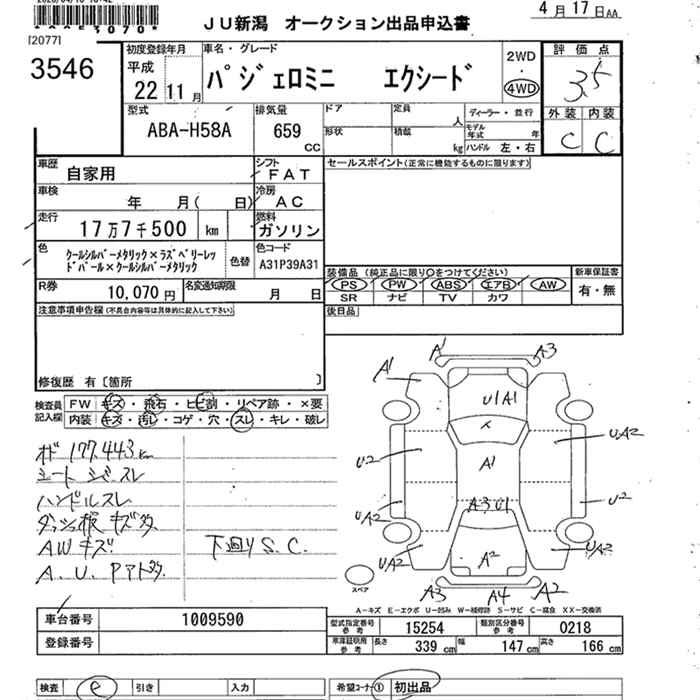 JU新潟 オークション出品申込書
4月17日AA
[2077]
3546
初度登録年月
平成
22 11 月
車名・グレード
パジェロミニ エクシード
2WD
・
4WD
評価点
3.5
外装 内装
C C
型式
ABA-H58A
排気量
659
cc
ドア
形状
定員
人
積載
kg
ディーラー・並行
モデル年式 年
ハンドル 左・右
車歴
自家用
シフト
FAT
車検
年 月( 日)
冷房
AC
走行
17万7千500 km
燃料
ガソリン
色
クールシルバーメタリック×ラズベリーレッ
ドパール×クールシルバーメタリック
色替
色コード
A31P39A31
R券
10,070 円
名変通知期限
月 日
セールスポイント(正常に機能するものに限ります)
装備品 (純正品に限り○をつけてください)
PS PW ABS エアB AW
SR ナビ TV カワ
新車保証書
有・無
後日品
注意事項申告欄(不具合内容等は具体的に記入して下さい)
修復歴 有〔箇所 〕
検査員記入欄
FW キズ・飛石・ヒビ割・リペア跡・×要
内装 キズ・汚れ・コゲ・穴・スレ・キレ・破レ
オド 177,443km
シート シミ スレ
ハンドルスレ
AWキズ
下廻りS.C.
A1 A3
A1
U1A1
×
UA2
U2
A1
U2
A3U1
UA2
UA2
A2
UA2
スペア
A3 A4 A2
A-キズ E-エクボ U-凹み W-補修跡 S-サビ C-腐食 XX-交換済
車台番号
1009590
登録番号
型式指定番号
参考
15254
類別区分番号
参考
0218
車庫証明用
参考
長さ
339 cm
幅
147 cm
高さ
166 cm
検査
引き
入力
希望コーナー
① 初出品